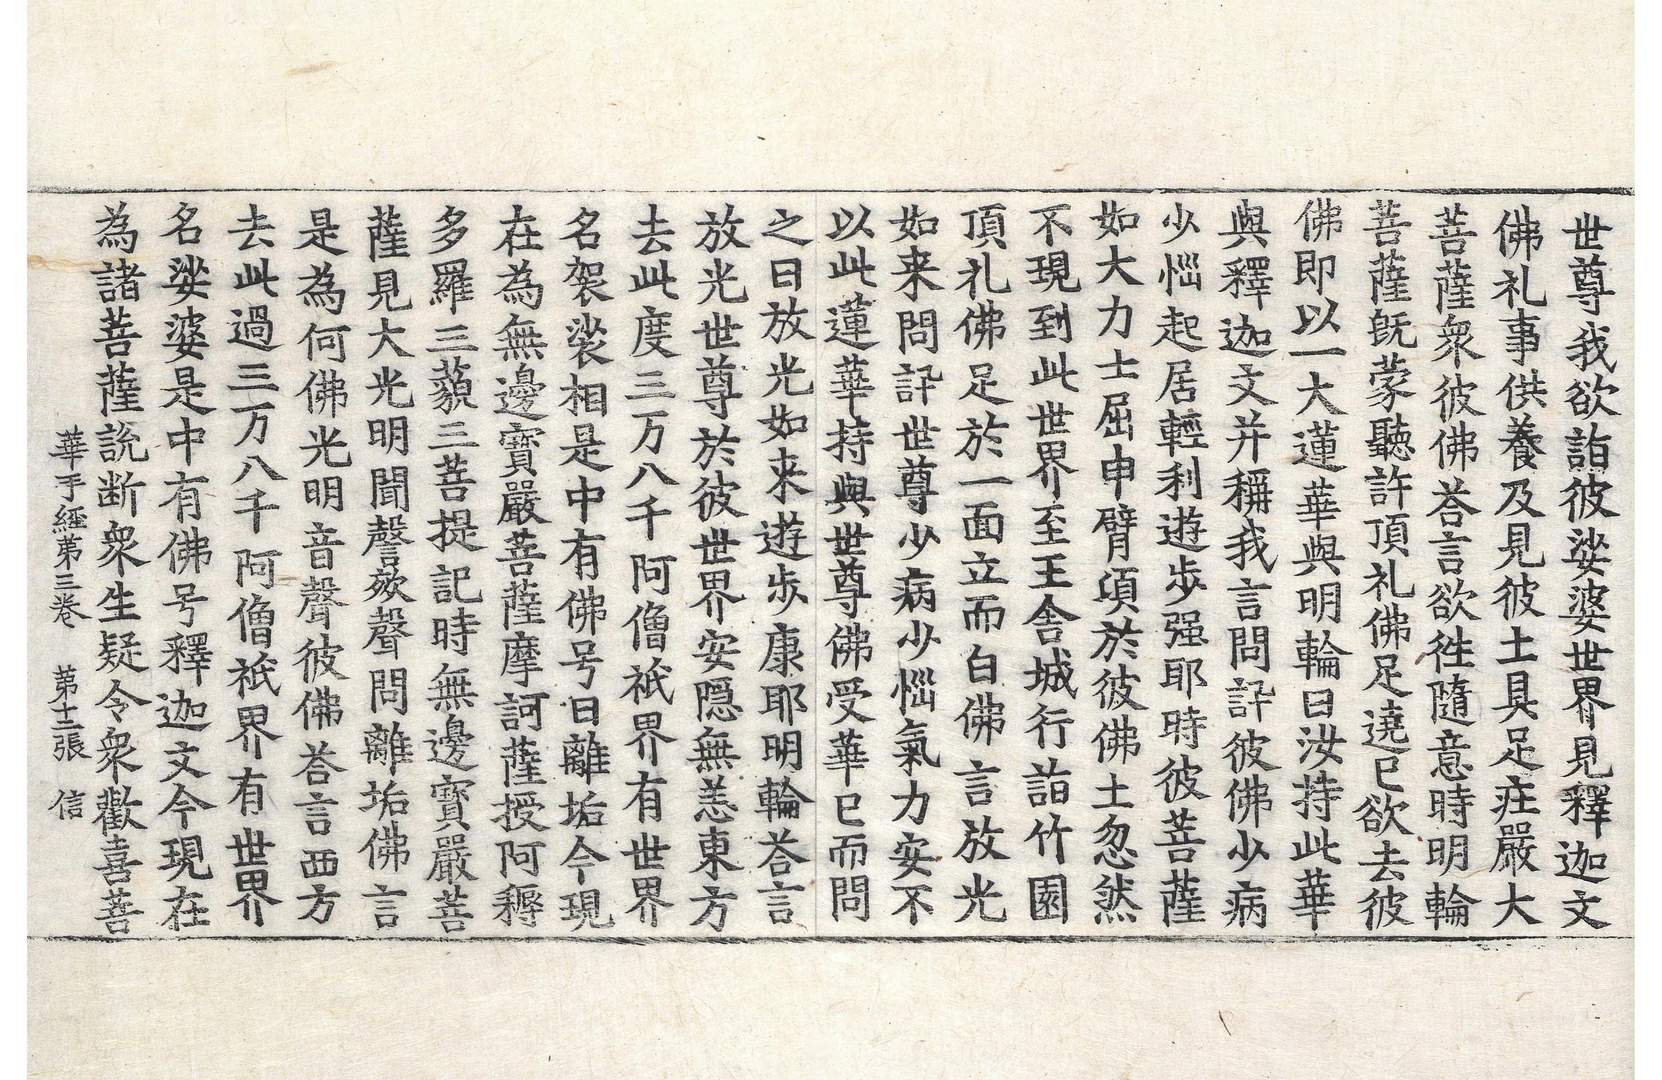 世尊我欲詣彼娑婆世界見釋迦文
佛礼事供養及見彼土具足庄嚴大
菩薩衆彼佛荅言欲徃隨意時明輪
菩薩旣蒙聽許頂礼佛足遶已欲去彼
佛即以一大蓮華與明輪曰汝持此華
與釋迦文并稱我言問訊彼佛少病
少惱起居輕利遊步强耶時彼菩薩
如大力士屈申臂頃於彼佛土忽然
不現到此世界至王舍城行詣竹園
頂礼佛足於一面立而白佛言放光
如来問訊世尊少病少惱氣力安不
以此蓮華持與世尊佛受華已而問
之曰放光如来遊步康耶明輪荅言
放光世尊於彼世界安隱無恙東方
去此度三万八千阿僧祇界有世界
名袈裟相是中有佛号曰離垢今現
在為無邊寶嚴菩薩摩訶薩授阿耨
多羅三藐三菩提記時無邊寶嚴菩
薩見大光明聞謦欬聲問離垢佛言
是為何佛光明音聲彼佛荅言西方
去此過三万八千阿僧祇界有世界
名娑婆是中有佛号釋迦文今現在
為諸菩薩說断衆生疑令衆歡喜菩
華手經第三卷　第十二張　信